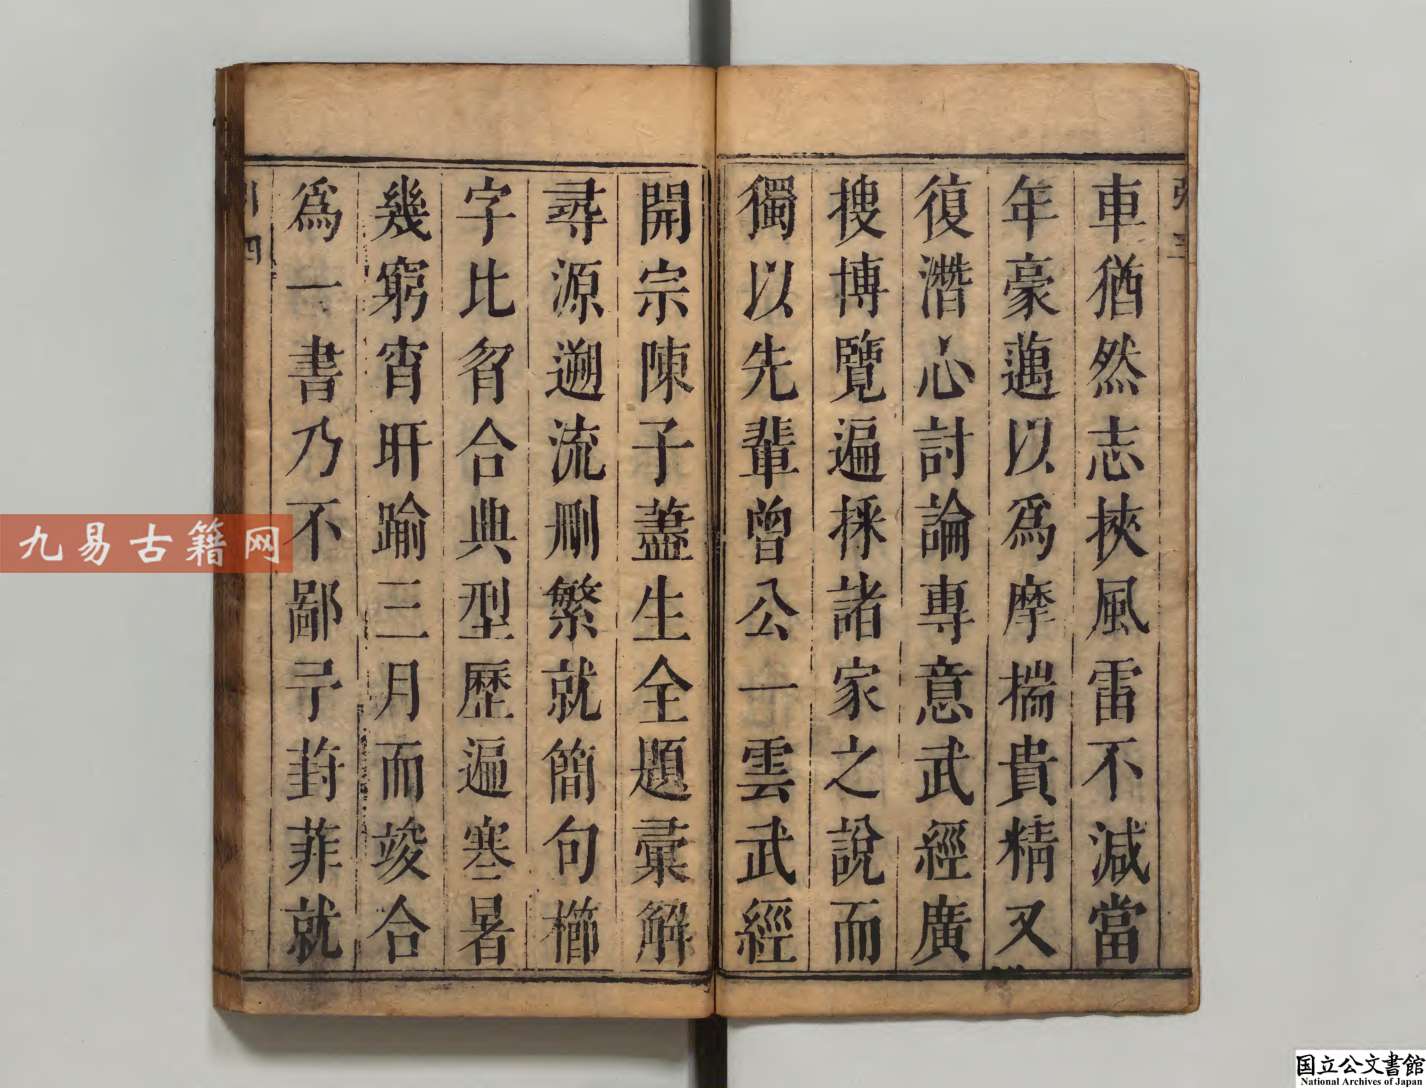 車猶然志挾風雷不減當
年豪邁以爲摩揣貴精又
復潛心討論專意武經廣
搜博覽遍採諸家之說而
獨以先輩曾公一雲武經
開宗陳子藎生全題彙解
尋源遡流刪繁就簡句櫛
字比旨合典型歷遍寒暑
幾窮宵旰踰三月而竣合
爲一書乃不鄙予葑菲就
四
九易古籍网
国立公文書館
National Archives of Japan